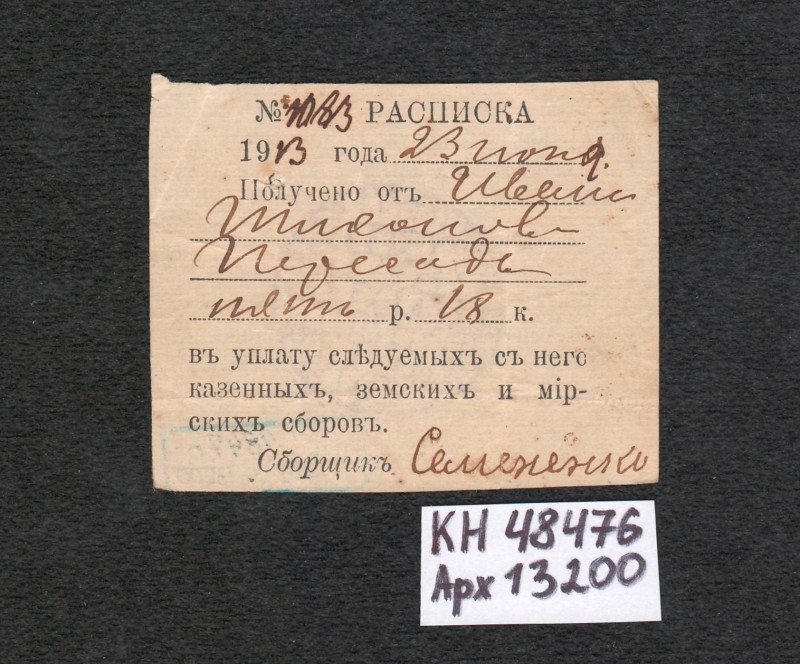 № 1083 РАСПИСКА
1913 года 23 июня.
Получено отъ Ивана
Тихонова
Пересады
пять р. 18 к.
въ уплату слѣдуемыхъ съ него
казенныхъ, земскихъ и мір-
скихъ сборовъ.
Сборщикъ Семененко
КН 48476
Арх 13200